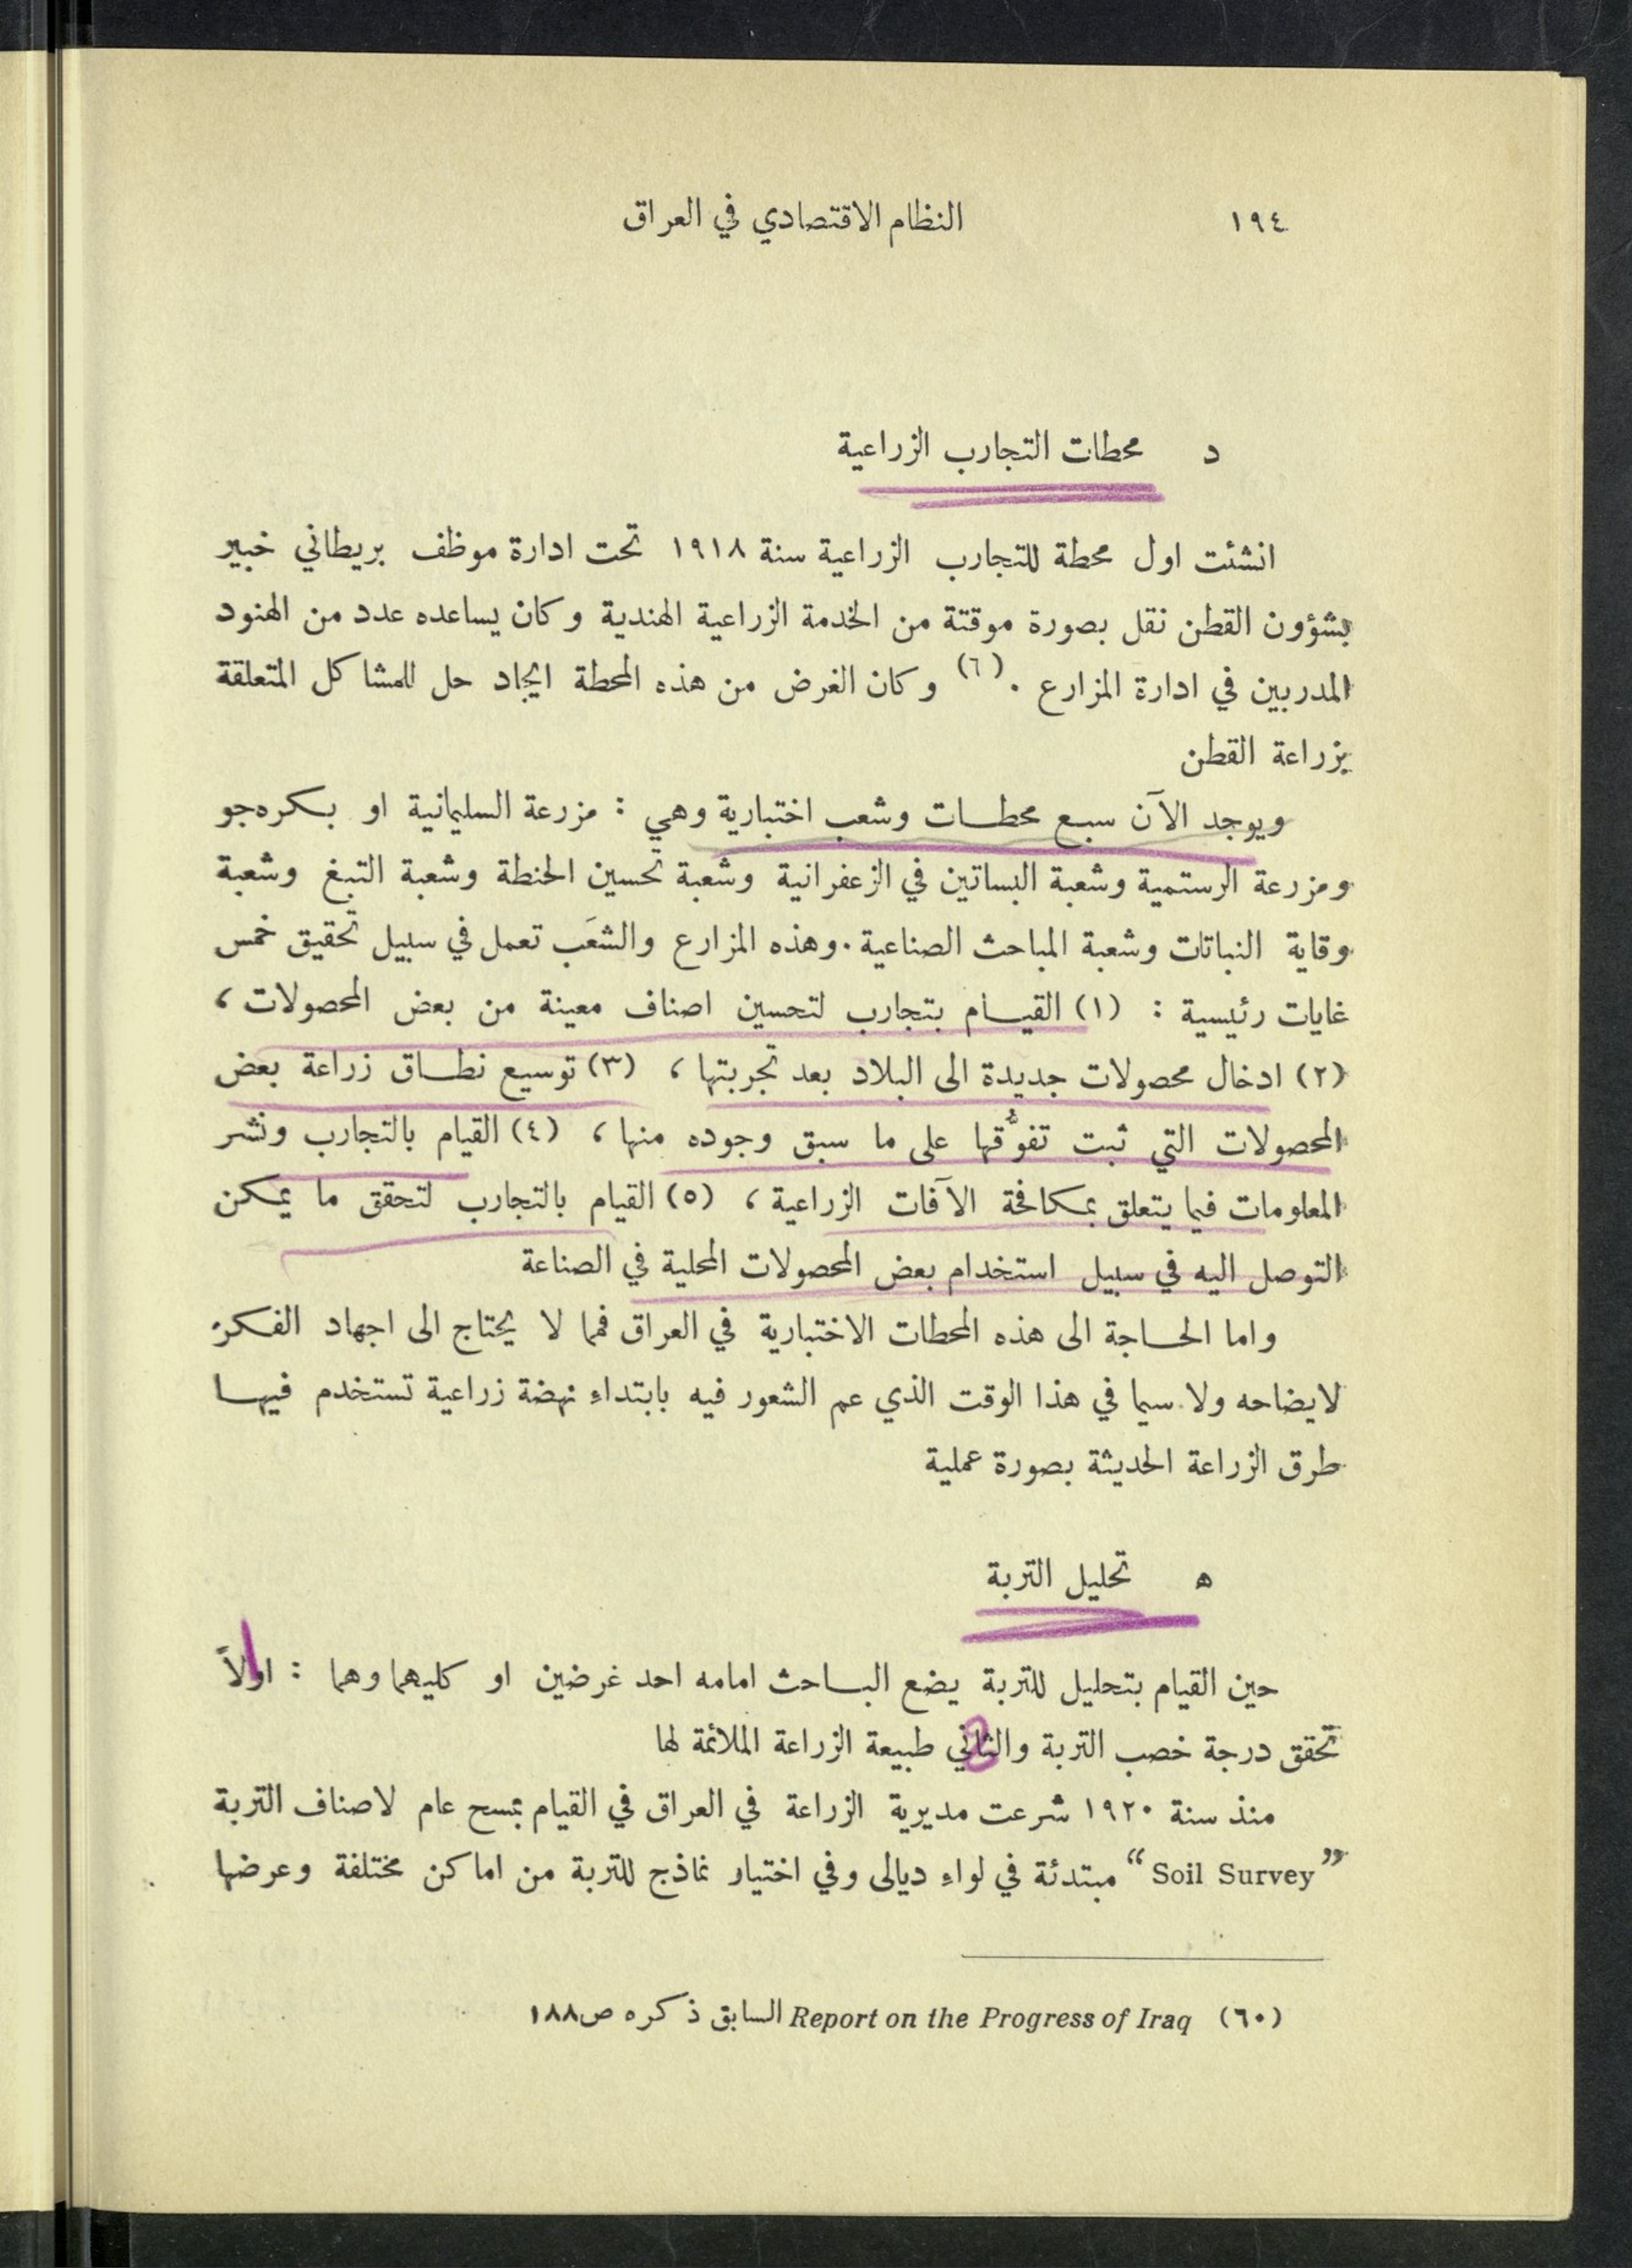 ١٩٤ النظام الاقتصادي في العراق
د محطات التجارب الزراعية
انشئت اول محطة للتجارب الزراعية سنة ١٩١٨ تحت ادارة موظف بريطاني خبير
بشؤون القطن نقل بصورة موقتة من الخدمة الزراعية الهندية وكان يساعده عدد من الهنود
المدربين في ادارة المزارع . (٦) وكان الغرض من هذه المحطة ايجاد حل للمشاكل المتعلقة
بزراعة القطن
ويوجد الآن سبع محطات وشعب اختبارية وهي : مزرعة السليمانية او بكره‌جو
ومزرعة الرستمية وشعبة البساتين في الزعفرانية وشعبة تحسين الحنطة وشعبة التبغ وشعبة
وقاية النباتات وشعبة المباحث الصناعية . وهذه المزارع والشعَب تعمل في سبيل تحقيق خمس
غايات رئيسية : (١) القيام بتجارب لتحسين اصناف معينة من بعض المحصولات ،
(٢) ادخال محصولات جديدة الى البلاد بعد تجربتها ، (٣) توسيع نطاق زراعة بعض
المحصولات التي ثبت تفوُّقها على ما سبق وجوده منها ، (٤) القيام بالتجارب ونشر
المعلومات فيما يتعلق بمكافحة الآفات الزراعية ، (٥) القيام بالتجارب لتحقق ما يمكن
التوصل اليه في سبيل استخدام بعض المحصولات المحلية في الصناعة
واما الحاجة الى هذه المحطات الاختبارية في العراق فمما لا يحتاج الى اجهاد الفكر
لايضاحه ولا سيما في هذا الوقت الذي عم الشعور فيه بابتداء نهضة زراعية تستخدم فيها
طرق الزراعة الحديثة بصورة عملية
ه تحليل التربة
حين القيام بتحليل للتربة يضع الباحث امامه احد غرضين او كليهما وهما : اولاً
تحقق درجة خصب التربة والثاني طبيعة الزراعة الملائمة لها
منذ سنة ١٩٢٠ شرعت مديرية الزراعة في العراق في القيام بمسح عام لاصناف التربة
”Soil Survey“ مبتدئة في لواء ديالى وفي اختيار نماذج للتربة من اماكن مختلفة وعرضها
(٦٠) Report on the Progress of Iraq السابق ذكره ص١٨٨